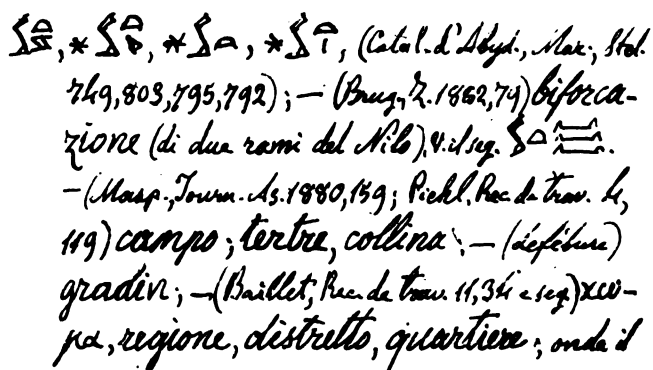 , * , * , * , (Catal. d'Abyd., Mar., Stel.
749, 803, 795, 792); — (Brug., Z. 1882, 79) biforca-
zione (di due rami del Nilo). V. il seg. .
— (Masp., Journ. As. 1880, 159; Piehl, Rec. de trav. 4,
119) campo; tertre, collina; — (Lefébure)
gradin; — (Baillet, Rec. de trav. 11, 34 e seg.)
, regione, distretto, quartiere; onde il